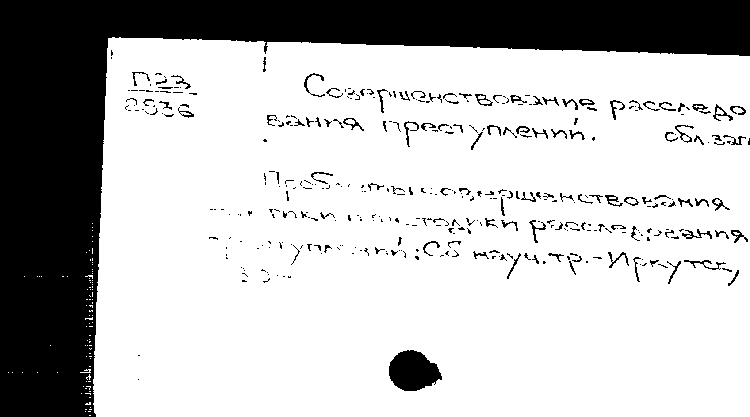 П23
2836
Совершенствование расследо
вания преступлений. обл.заг
совершенствования
тики и методики расследования
преступлений: Сб науч.тр.-Иркутск,